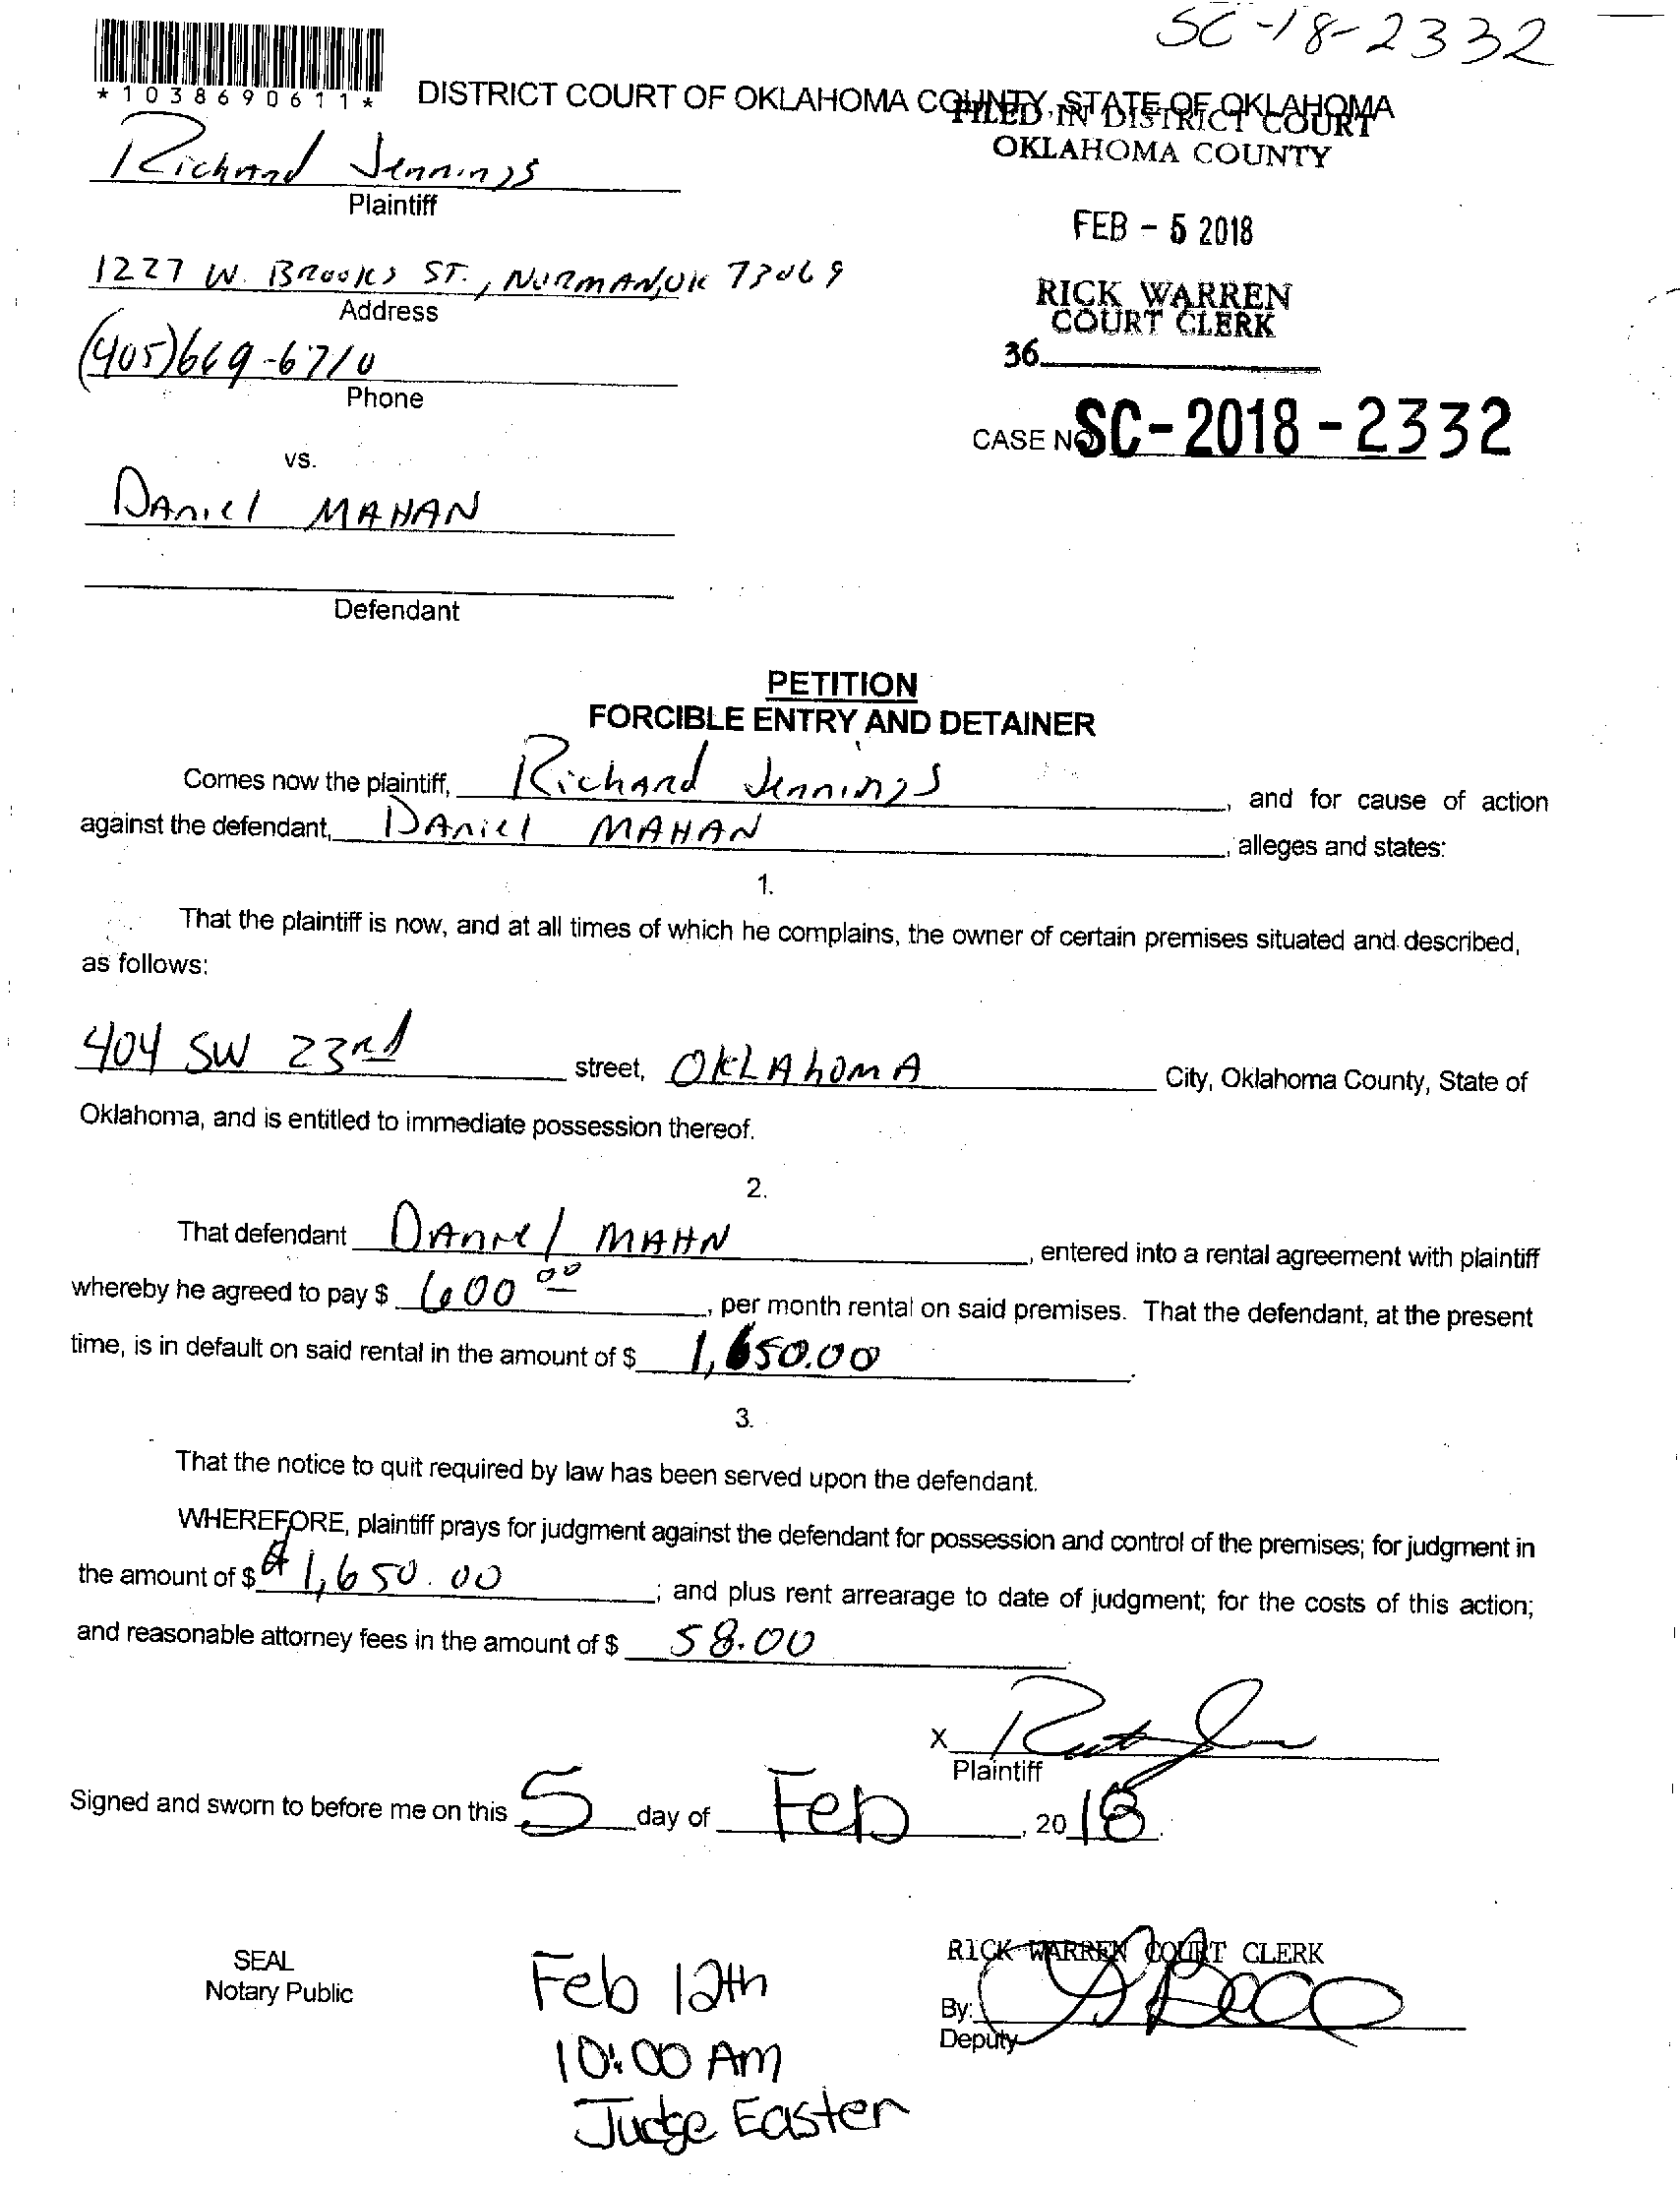 SC-18-2332
*1038690611*
DISTRICT COURT OF OKLAHOMA COUNTY, STATE OF OKLAHOMA
FILED IN DISTRICT COURT
OKLAHOMA COUNTY
Richard Jennings
Plaintiff
FEB - 5 2018
1227 W. Brooks ST., NORMAN, OK 73069
Address
RICK WARREN
COURT CLERK
(405)669-6710
Phone
36
CASE NO. SC-2018-2332
vs.
DANIEL MAHAN
Defendant
PETITION
FORCIBLE ENTRY AND DETAINER
Comes now the plaintiff, Richard Jennings, and for cause of action
against the defendant, DANIEL MAHAN, alleges and states:
1.
That the plaintiff is now, and at all times of which he complains, the owner of certain premises situated and described,
as follows:
404 SW 23rd street, OKLAhOMA City, Oklahoma County, State of
Oklahoma, and is entitled to immediate possession thereof.
2.
That defendant DANIEL MAHN, entered into a rental agreement with plaintiff
whereby he agreed to pay $ 600 00, per month rental on said premises. That the defendant, at the present
time, is in default on said rental in the amount of $ 1,650.00.
3.
That the notice to quit required by law has been served upon the defendant.
WHEREFORE, plaintiff prays for judgment against the defendant for possession and control of the premises; for judgment in
the amount of $ 1,650.00; and plus rent arrearage to date of judgment; for the costs of this action;
and reasonable attorney fees in the amount of $ 58.00.
X
Plaintiff
Signed and sworn to before me on this 5 day of Feb, 2018.
SEAL
Notary Public
RICK WARREN COURT CLERK
By:
Deputy
Feb 12th
10:00 AM
Judge Easter